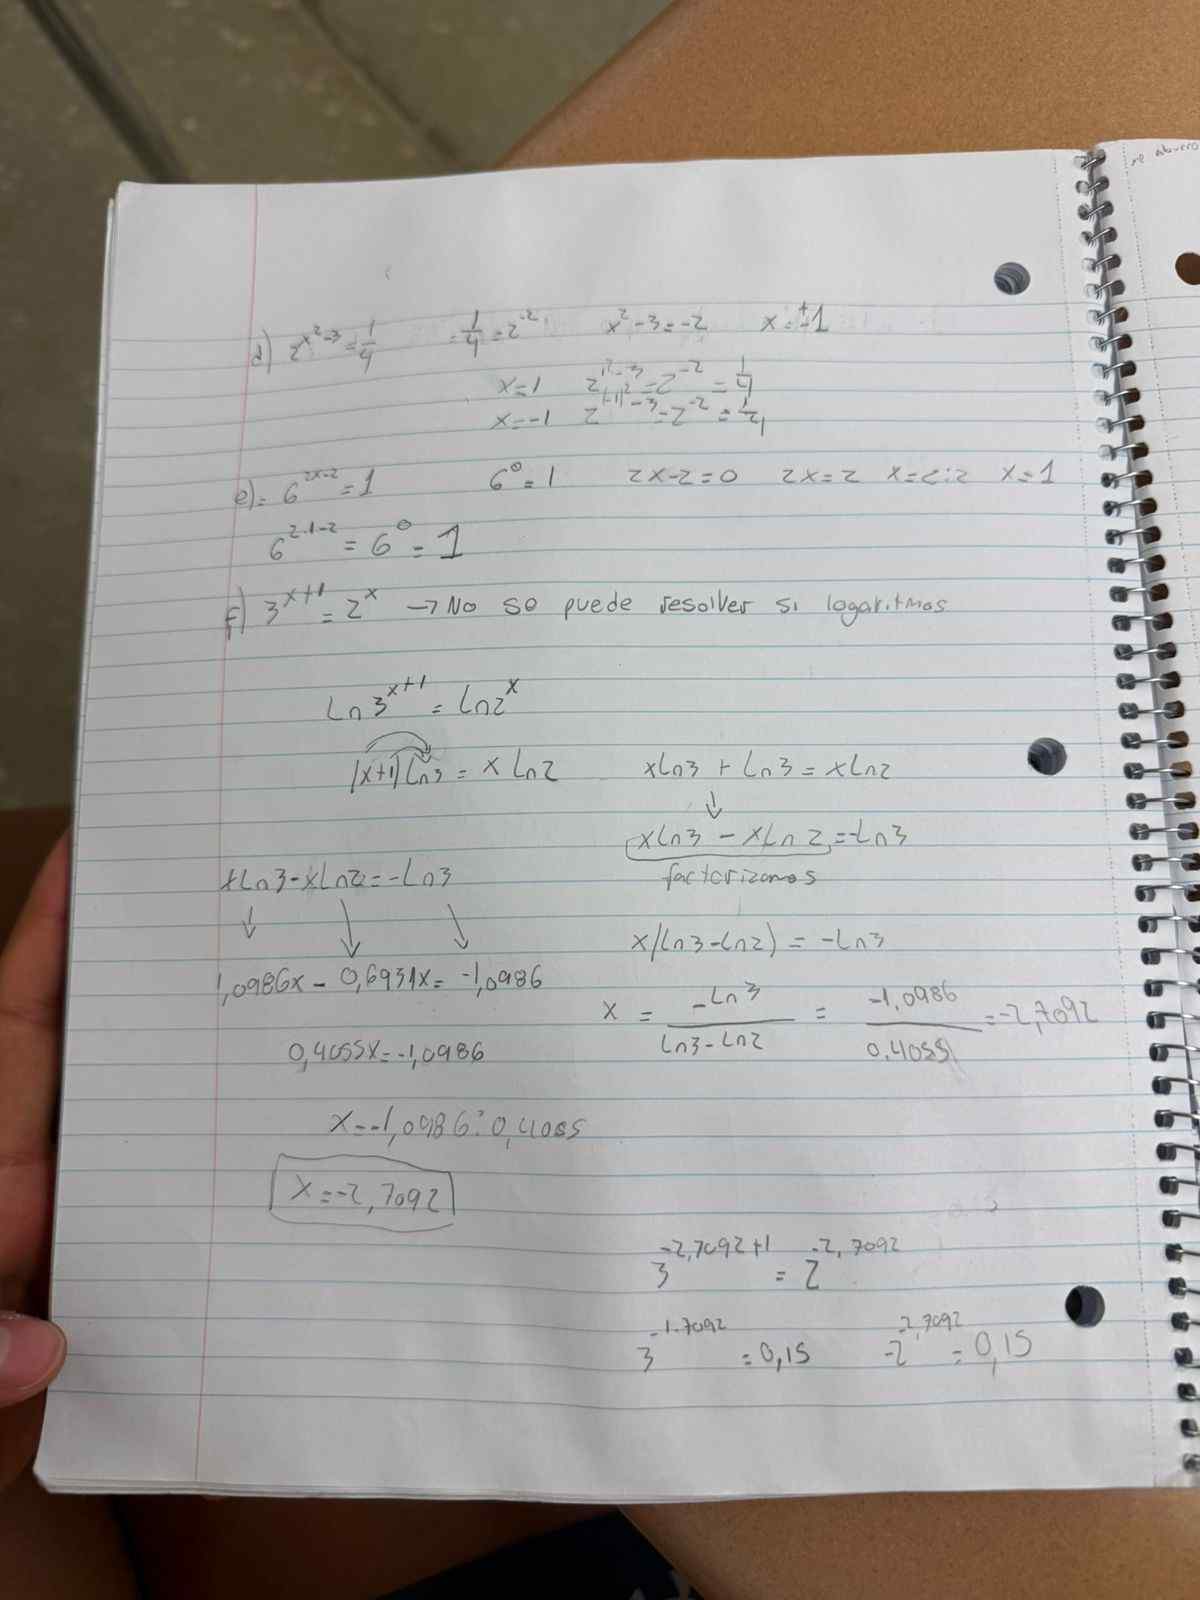 d) 2^(x²-3) = 1/4   = 1/4 = 2^-2   x² - 3 = -2   x = ±1
x = 1   2^(1²-3) = 2^-2 = 1/4
x = -1   2^((-1)²-3) = 2^-2 = 1/4
e) = 6^(2x-2) = 1   6^0 = 1   2x-2 = 0   2x = 2   x = 2:2   x = 1
6^(2·1-2) = 6^0 = 1
f) 3^(x+1) = 2^x → No se puede resolver si logaritmos
Ln 3^(x+1) = Ln 2^x
(x+1) Ln 3 = x Ln 2   xLn3 + Ln3 = xLn2
↓
xLn3 - xLn2 = -Ln3
factorizamos
xLn3 - xLn2 = -Ln3
x(Ln3 - Ln2) = -Ln3
1,0986x - 0,6931x = -1,0986
x = -Ln3 / (Ln3 - Ln2) = -1,0986 / 0,4055 = -2,7092
0,4055x = -1,0986
x = -1,0986 : 0,4055
x = -2,7092
3^(-2,7092+1) = 2^(-2,7092)
3^(-1.7092) = 0,15   -2^(-2,7092) = 0,15